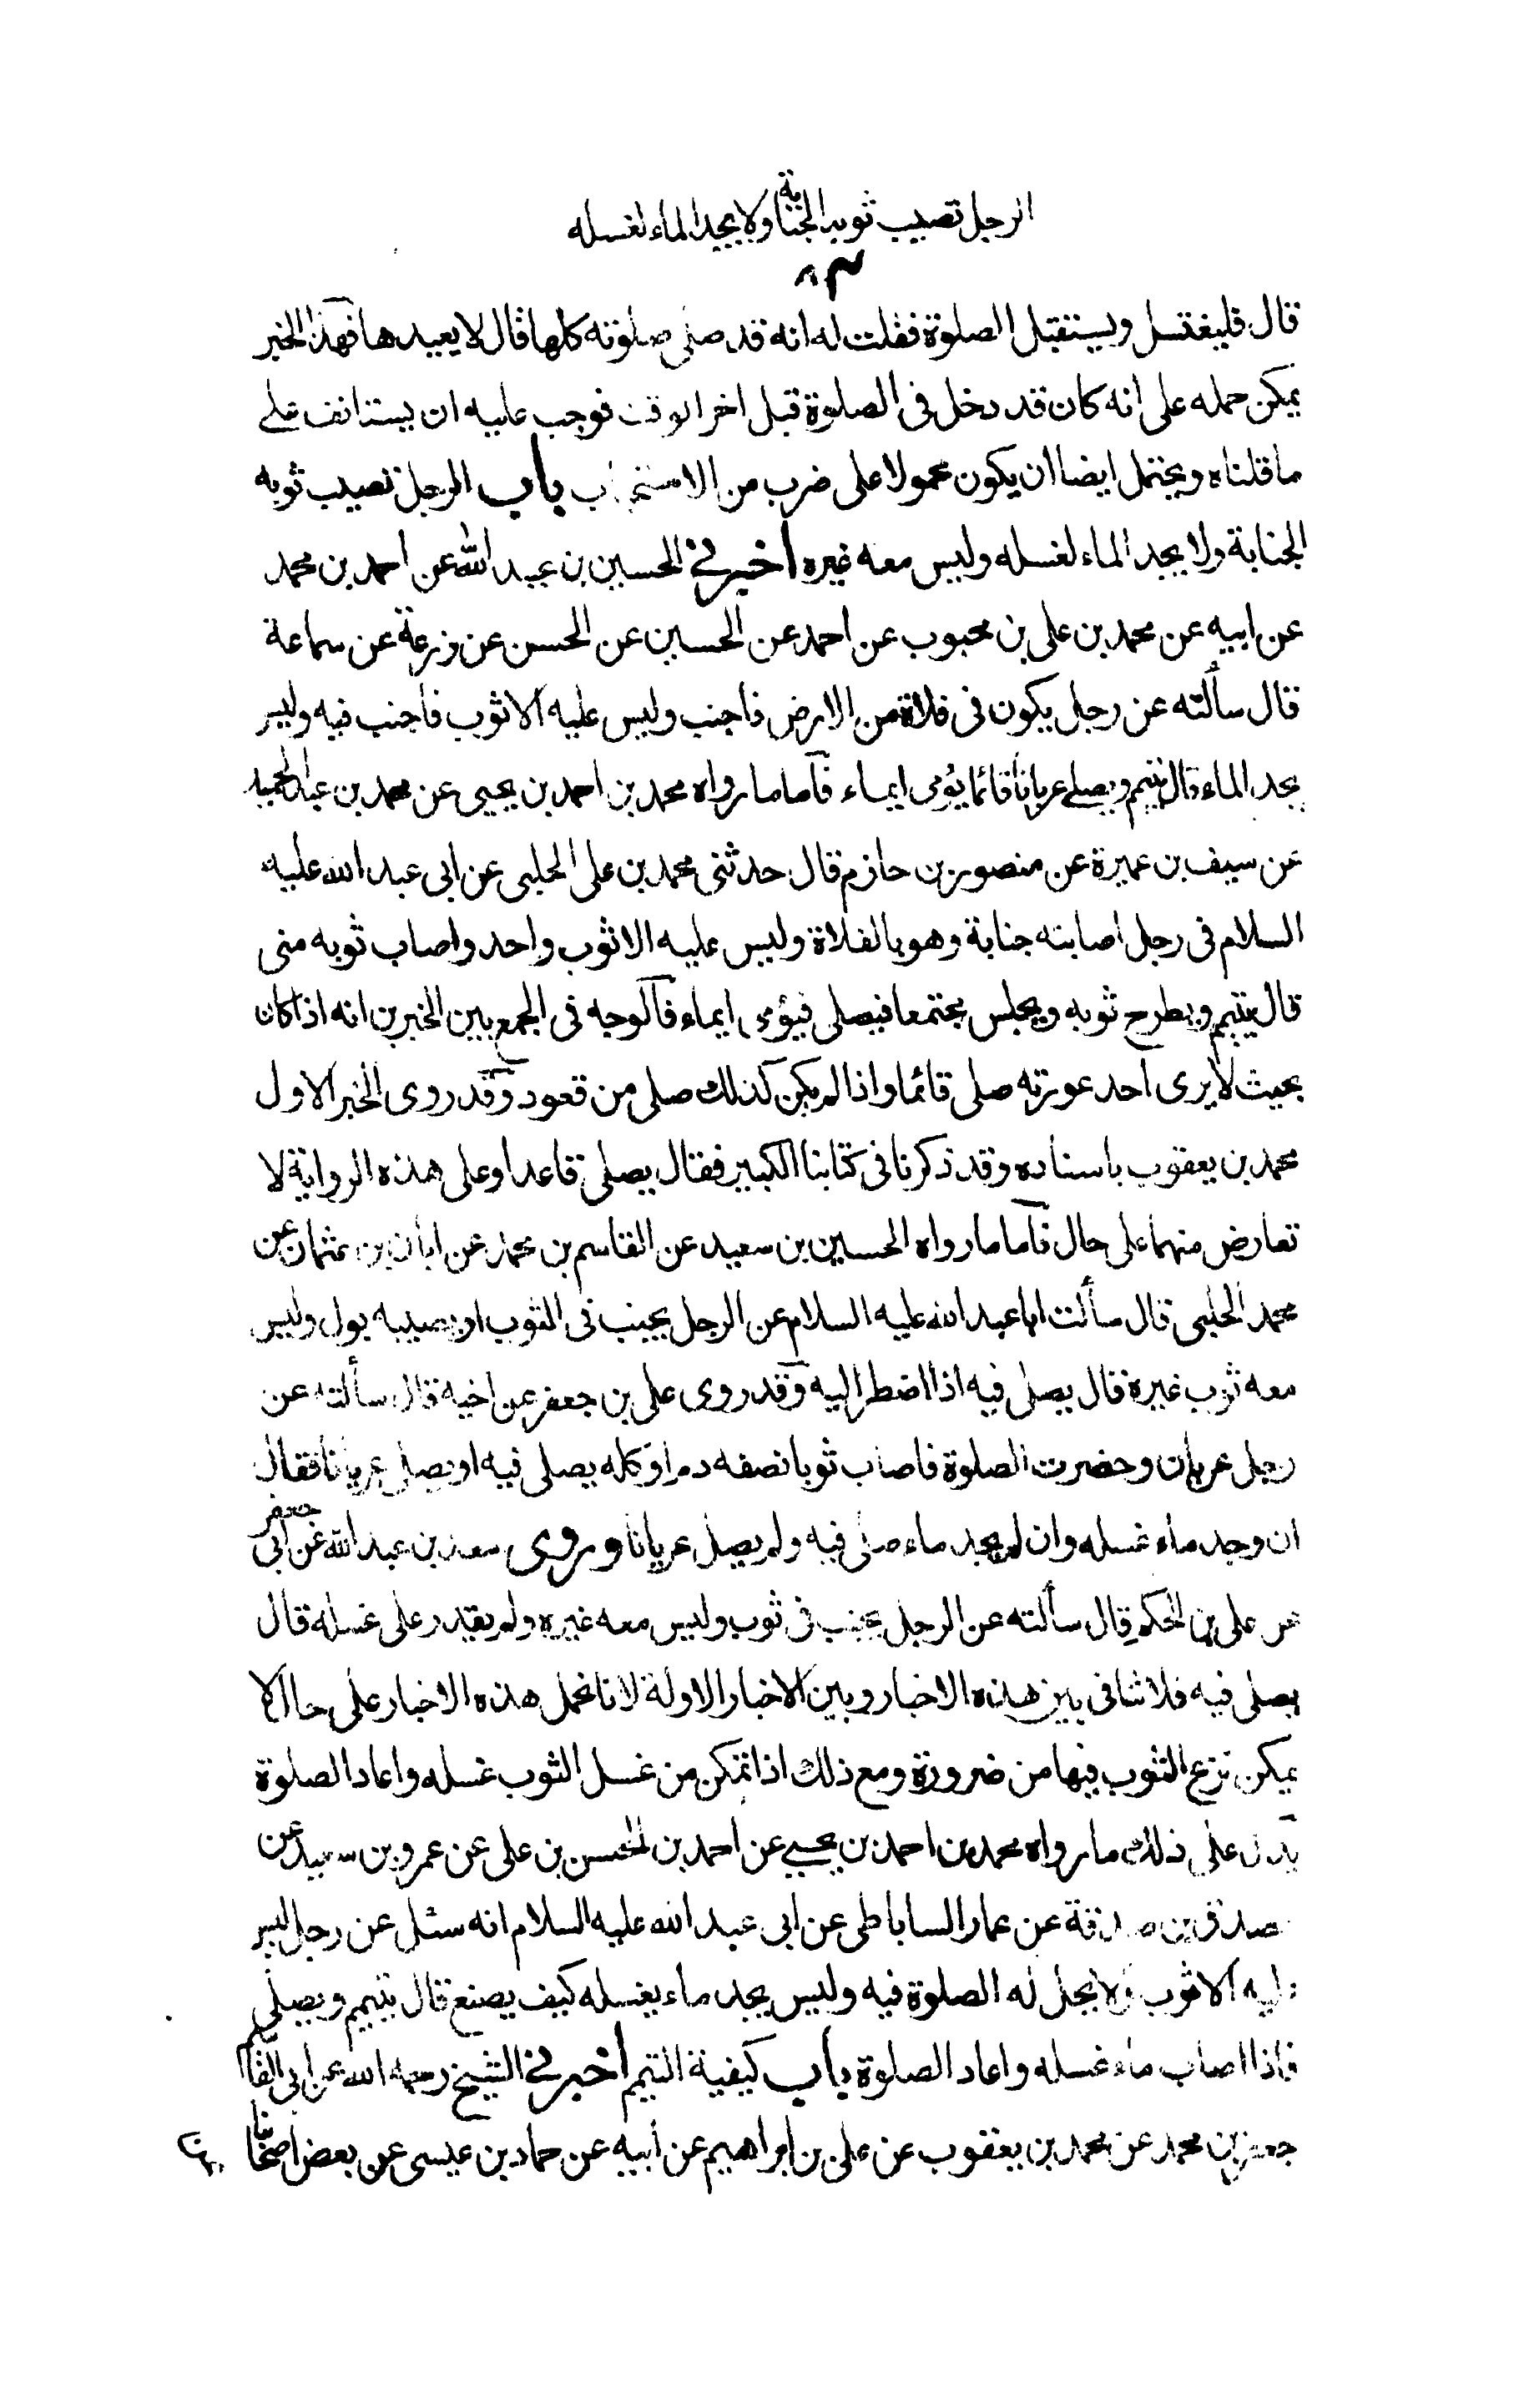 الرجل تصيب ثوبه الجنابة ولا يجد الماء لغسله
٨٣
قال فليغتسل ويستقبل الصلوة فقلت له انه قد صلى صلوته كلها قال لا يعيدها فهذا الخبر
يمكن حمله على انه كان قد دخل فى الصلوة قبل اخر الوقت فوجب عليه ان يستانف على
ما قلناه ويحتمل ايضا ان يكون محمولا على ضرب من الاستحباب باب الرجل تصيب ثوبه
الجنابة ولا يجد الماء لغسله وليس معه غيره اخبرنى الحسين بن عبيد الله عن احمد بن محمد
عن ابيه عن محمد بن على بن محبوب عن احمد عن الحسين عن الحسن عن زرعة عن سماعة
قال سألته عن رجل يكون فى فلاة من الارض فاجنب وليس عليه الا ثوب فاجنب فيه وليس
يجد الماء قال يتيمم ويصلى عريانا قائما يؤمى ايماء فاما ما رواه محمد بن احمد بن يحيى عن محمد بن عبد الحميد
عن سيف بن عميرة عن منصور بن حازم قال حدثنى محمد بن على الحلبى عن ابى عبد الله عليه
السلام فى رجل اصابته جنابة وهو بالفلاة وليس عليه الا ثوب واحد واصاب ثوبه منى
قال يتيمم ويطرح ثوبه ويجلس مجتمعا فيصلى فيؤمى ايماء فالوجه فى الجمع بين الخبرين انه اذا كان
بحيث لا يرى احد عورته صلى قائما واذا لم يكن كذلك صلى من قعود وقد روى الخبر الاول
محمد بن يعقوب باسناده وقد ذكرنا فى كتابنا الكبير فقال يصلى قاعدا وعلى هذه الرواية لا
تعارض منهما على حال فاما ما رواه الحسين بن سعيد عن القاسم بن محمد عن ابان بن عثمان عن
محمد الحلبى قال سألت ابا عبد الله عليه السلام عن الرجل يجنب فى الثوب او يصيبه بول وليس
معه ثوب غيره قال يصلى فيه اذا اضطر اليه وقد روى على بن جعفر عن اخيه قال سألته عن
رجل عريان وحضرت الصلوة فاصاب ثوبا نصفه دم او كله يصلى فيه او يصلى عريانا فقال
ان وجد ماء غسله وان لم يجد ماء صلى فيه ولم يصل عريانا وروى سعد بن عبد الله عن ابى جعفر
عن على بن الحكم قال سألته عن الرجل يجنب فى ثوب وليس معه غيره ولم يقدر على غسله قال
يصلى فيه فلا تنافى بين هذه الاخبار وبين الاخبار الاولة لانا نحمل هذه الاخبار على حال لا
يمكن نزع الثوب فيها من ضرورة ومع ذلك اذا تمكن من غسل الثوب غسله واعاد الصلوة
يدل على ذلك ما رواه محمد بن احمد بن يحيى عن احمد بن الحسن بن على عن عمرو بن سعيد عن
مصدق بن صدقة عن عمار الساباطى عن ابى عبد الله عليه السلام انه سئل عن رجل ليس
عليه الا ثوب ولا يحل له الصلوة فيه وليس يجد ماء يغسله كيف يصنع قال يتيمم ويصلى
فاذا اصاب ماء غسله واعاد الصلوة باب كيفية التيمم اخبرنى الشيخ رحمه الله عن ابى القاسم
جعفر بن محمد عن محمد بن يعقوب عن على بن ابراهيم عن أبيه عن حماد بن عيسى عن بعض اصحابنا